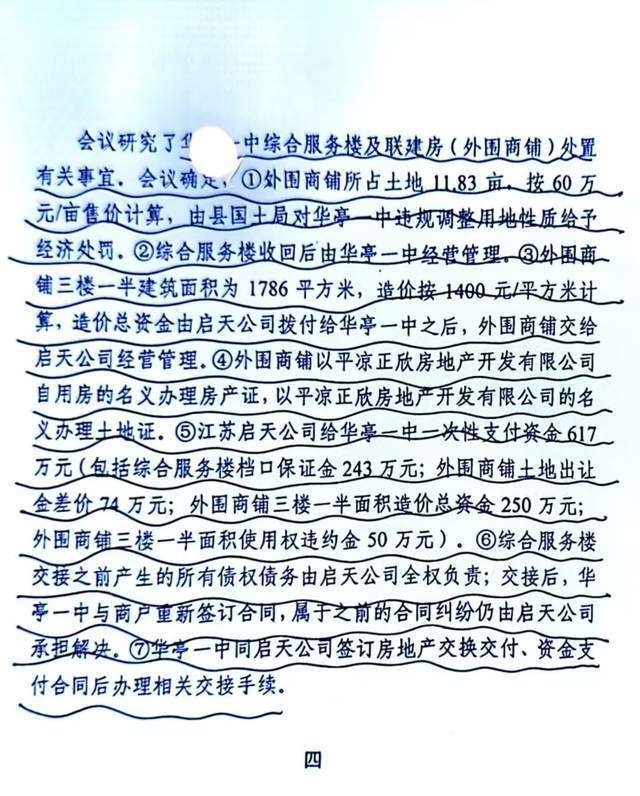 会议研究了华一中综合服务楼及联建房（外围商铺）处置
有关事宜. 会议确定, ①外围商铺所占土地 11.83 亩, 按 60 万
元/亩售价计算, 由县国土局对华亭一中违规调整用地性质给予
经济处罚. ②综合服务楼收回后由华亭一中经营管理. ③外围商
铺三楼一半建筑面积为 1786 平方米, 造价按 1400 元/平方米计
算, 造价总资金由启天公司拨付给华亭一中之后, 外围商铺交给
启天公司经营管理. ④外围商铺以平凉正欣房地产开发有限公司
自用房的名义办理房产证, 以平凉正欣房地产开发有限公司的名
义办理土地证. ⑤江苏启天公司给华亭一中一次性支付资金 617
万元（包括综合服务楼档口保证金 243 万元; 外围商铺土地出让
金差价 74 万元; 外围商铺三楼一半面积造价总资金 250 万元;
外围商铺三楼一半面积使用权违约金 50 万元）. ⑥综合服务楼
交接之前产生的所有债权债务由启天公司全权负责; 交接后, 华
亭一中与商户重新签订合同, 属于之前的合同纠纷仍由启天公司
承担解决. ⑦华亭一中同启天公司签订房地产交换交付、资金支
付合同后办理相关交接手续.
四